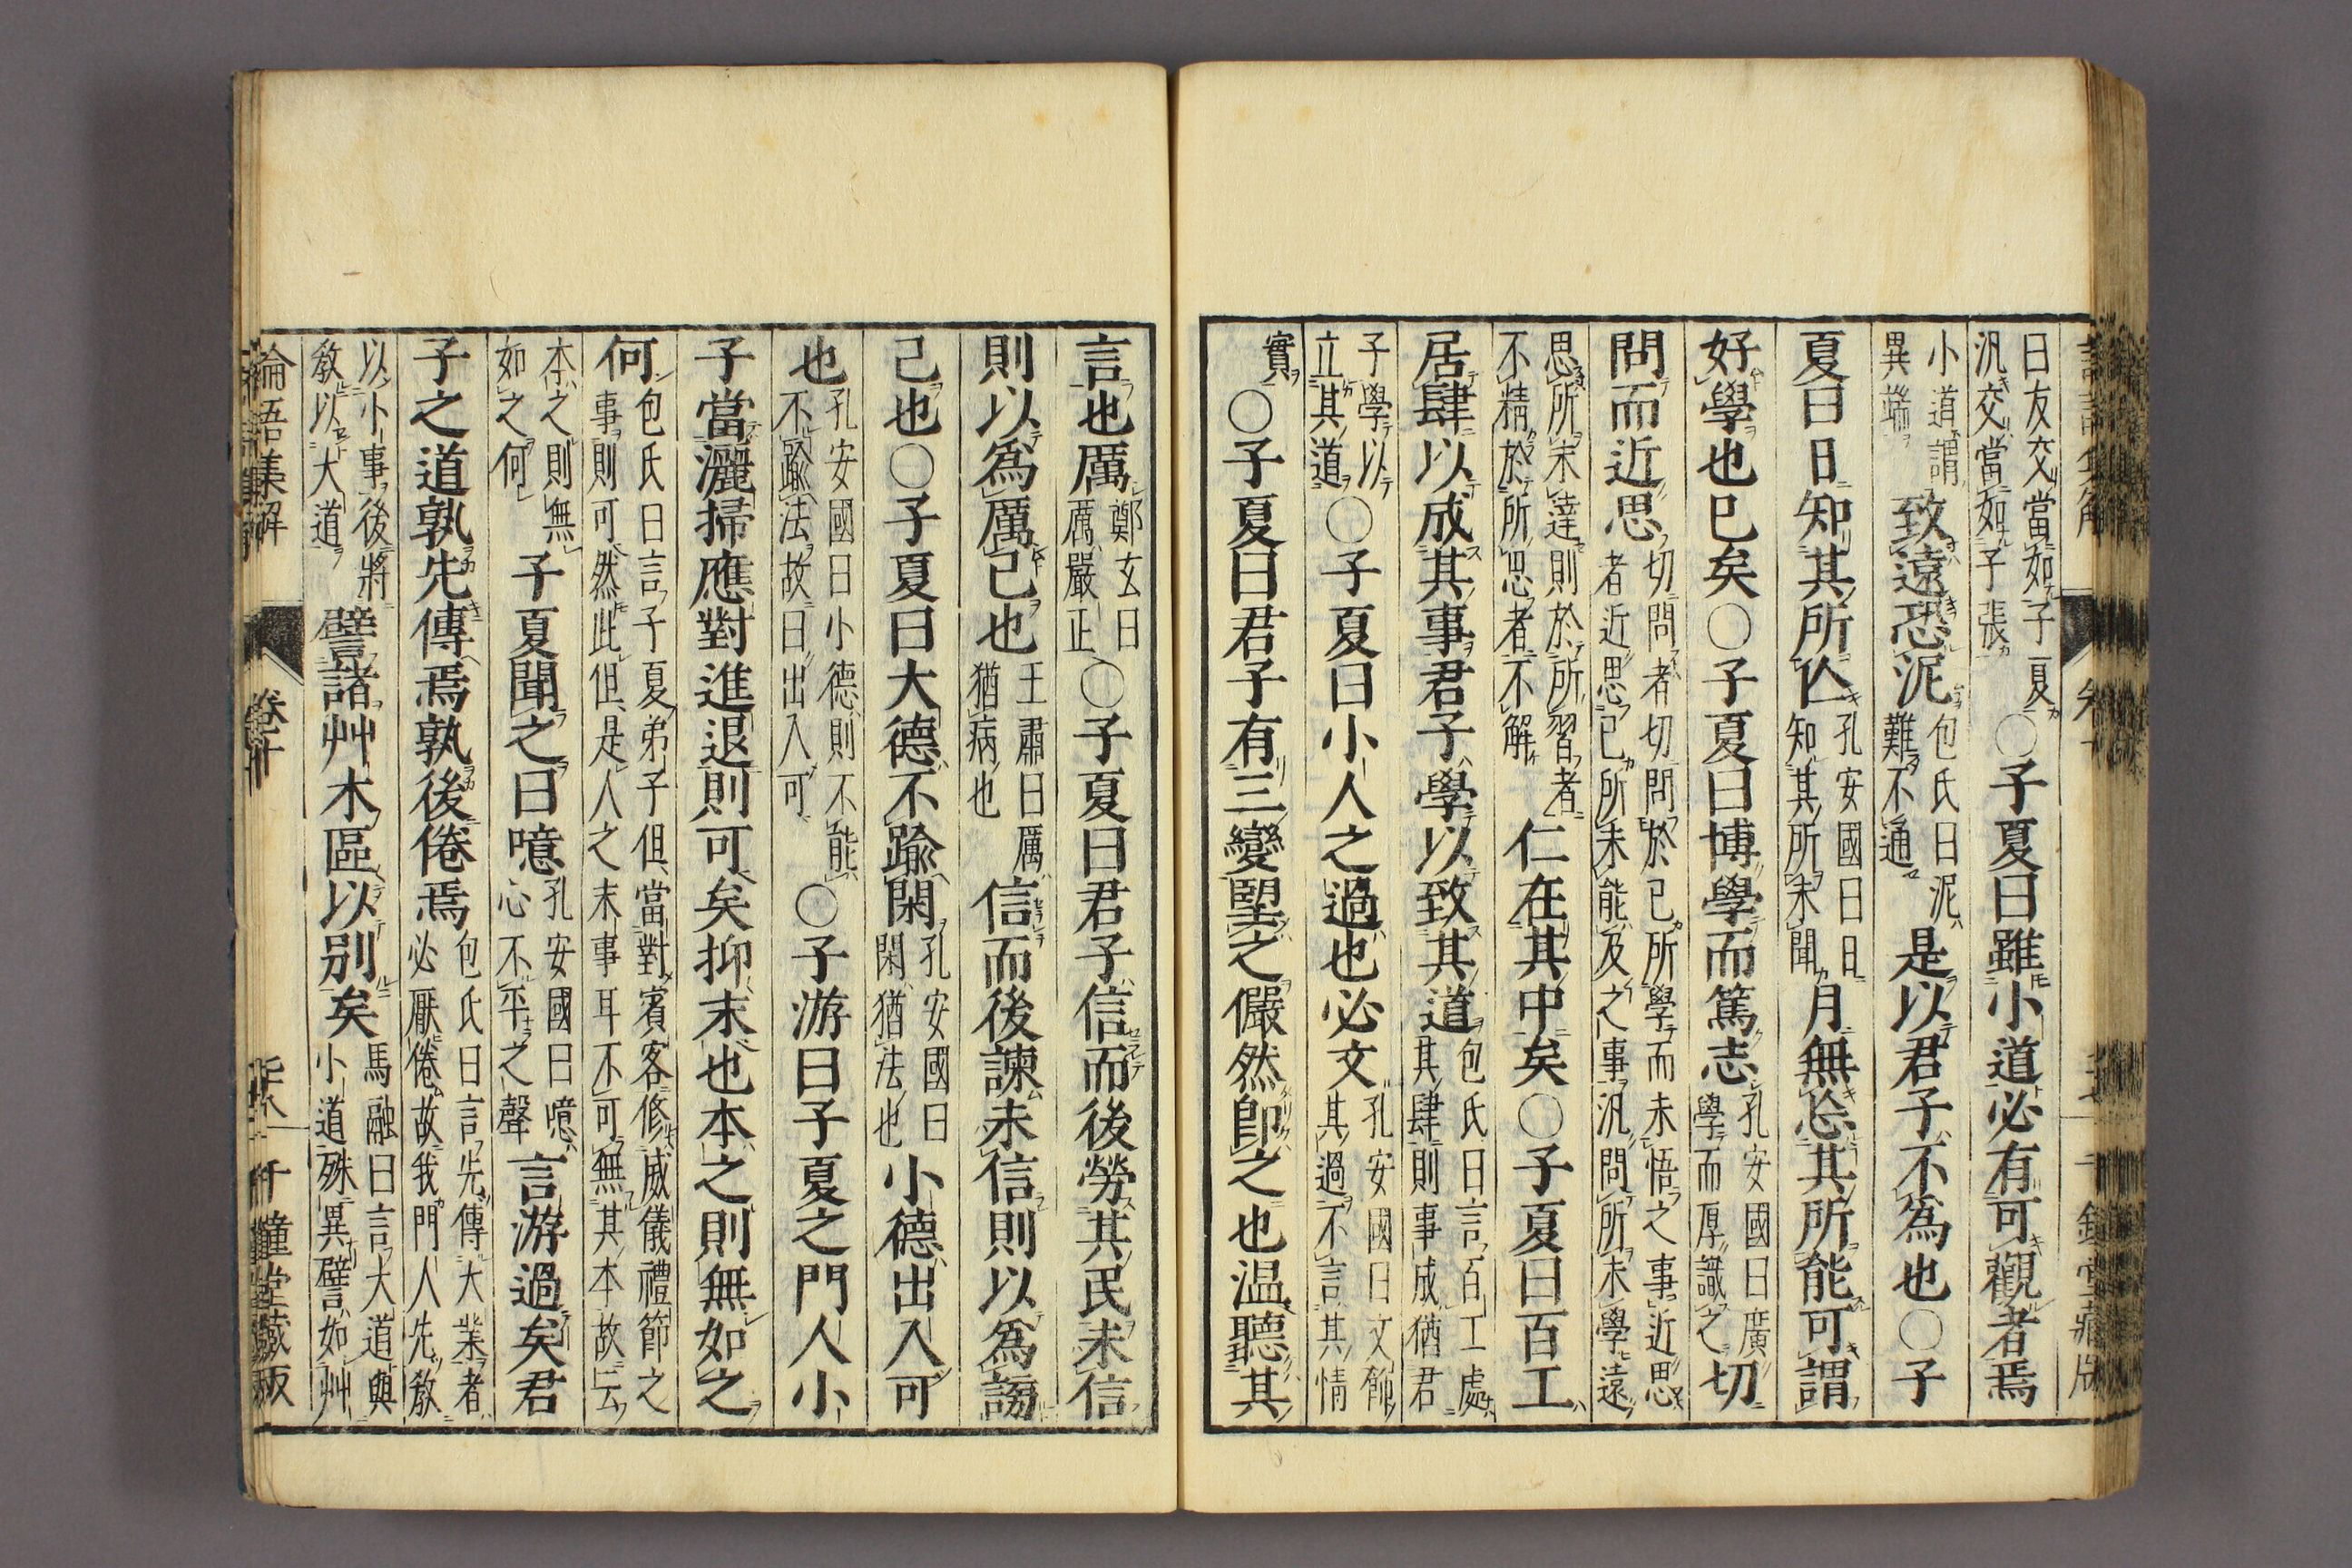 曰友交當如子夏
汎交當如子張
○子夏曰雖小道必有可觀者焉
小道謂
異端
致遠恐泥
包氏曰泥
難不通
是以君子不爲也○子
夏曰日知其所亾
孔安國曰日
知其所未聞
月無忘其所能可謂
好學也已矣○子夏曰博學而篤志
孔安國曰廣
學而厚識之
切
問而近思
切問者切問於己所學而未悟之事近思
者近思己所未能及之事汎問所未學遠
思所未達則於所習者
不精於所思者不解
仁在其中矣○子夏曰百工
居肆以成其事君子學以致其道
包氏曰言百工處
其肆則事成猶君
子學以
立其道
○子夏曰小人之過也必文
孔安國曰文飾
其過不言其情
實
○子夏曰君子有三變望之儼然卽之也温聽其
言也厲
鄭玄曰
厲嚴正
○子夏曰君子信而後勞其民未信
則以爲厲己也
王肅曰厲
猶病也
信而後諫未信則以爲謗
己也○子夏曰大德不踰閑
孔安國曰
閑猶法也
小德出入可
也
孔安國曰小德則不能
不踰法故曰出入可
○子游曰子夏之門人小
子當灑掃應對進退則可矣抑末也本之則無如之
何
包氏曰言子夏弟子但當對賓客修威儀禮節之
事則可然此但是人之末事耳不可無其本故云
本之則無
如之何
子夏聞之曰噫
孔安國曰噫
心不平之聲
言游過矣君
子之道孰先傳焉孰後倦焉
包氏曰言先傳大業者
必厭倦故我門人先敎
以小事後將
敎以大道
譬諸艸木區以別矣
馬融曰言大道與
小道殊異譬如艸
論語集解
卷十
千鍾堂藏版